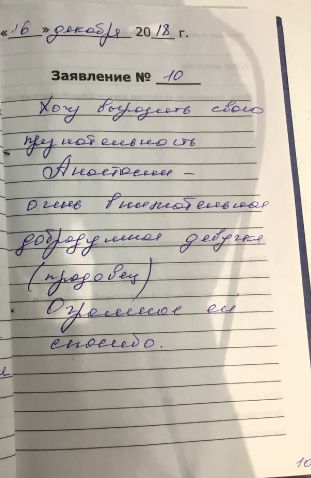 «16» декабря 2018 г.
Заявление № 10
Хочу выразить свою
признательность
Анастасии –
очень внимательная
добродушная девушка
(продавец)
Огромное ей
спасибо.
10